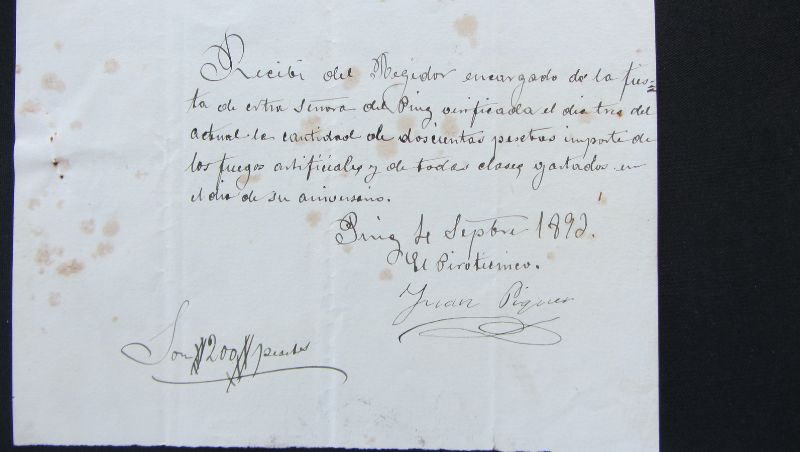 Recibi del Regidor encargado de la fies=
ta de ntra Señora del Puig verificada el dia tres del
actual la cantidad de doscientas pesetas importe de
los fuegos artificiales y de todas clases gastados en
el dia de su aniversario.
Puig 4 Septbre 1893.
El Pirotecnico.
Juan Piquer
Son 200 pesetas